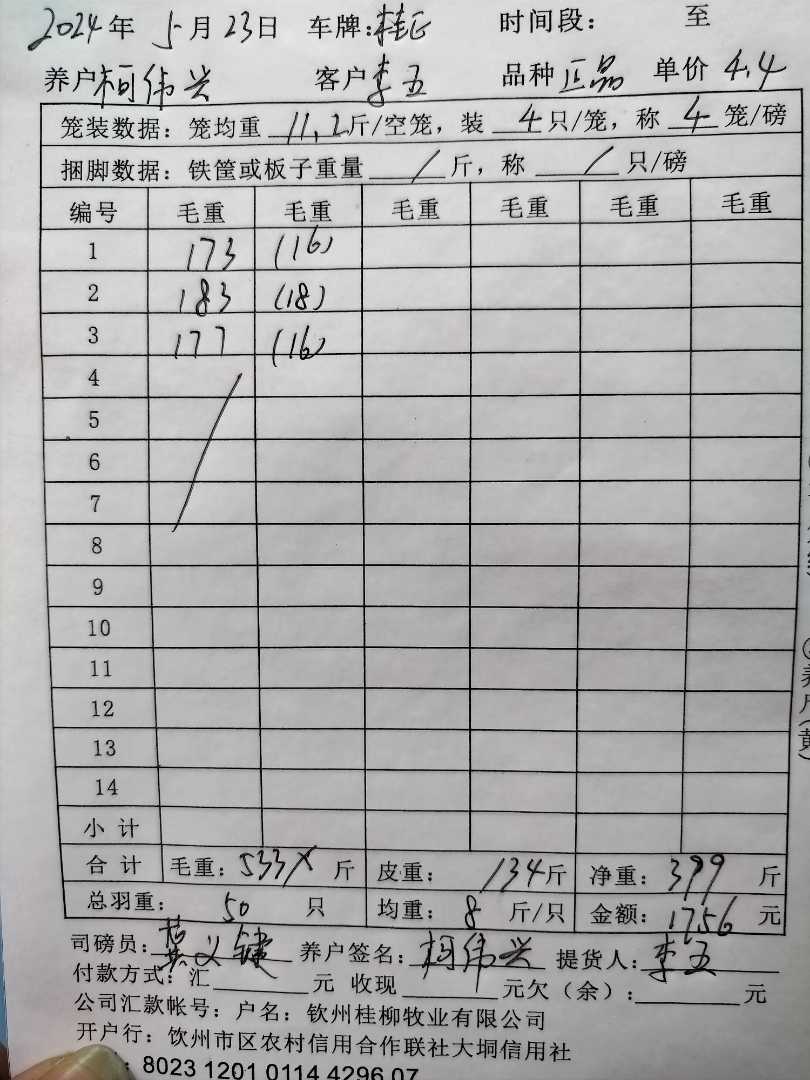 2024年 5月23日 车牌: 桂 时间段: 至
养户 柯伟兴 客户 李五 品种 正品 单价 4.4
笼装数据: 笼均重 11.2斤/空笼, 装 4只/笼, 称 4 笼/磅
捆脚数据: 铁筐或板子重量 / 斤, 称 / 只/磅
编号 毛重 毛重 毛重 毛重 毛重 毛重
1 173 (16)
2 183 (18)
3 177 (16)
4
5
6
7
8
9
10
11
12
13
14
小计
合计 毛重: 533 斤 皮重: 134斤 净重: 399 斤
总羽重: 50 只 均重: 8 斤/只 金额: 1756 元
司磅员: 养户签名: 柯伟兴 提货人: 李五
付款方式: 汇 元 收现 元欠(余): 元
公司汇款帐号: 户名: 钦州桂柳牧业有限公司
开户行: 钦州市区农村信用合作联社大垌信用社
8023 1201 0114 4296 07
养户(黄)